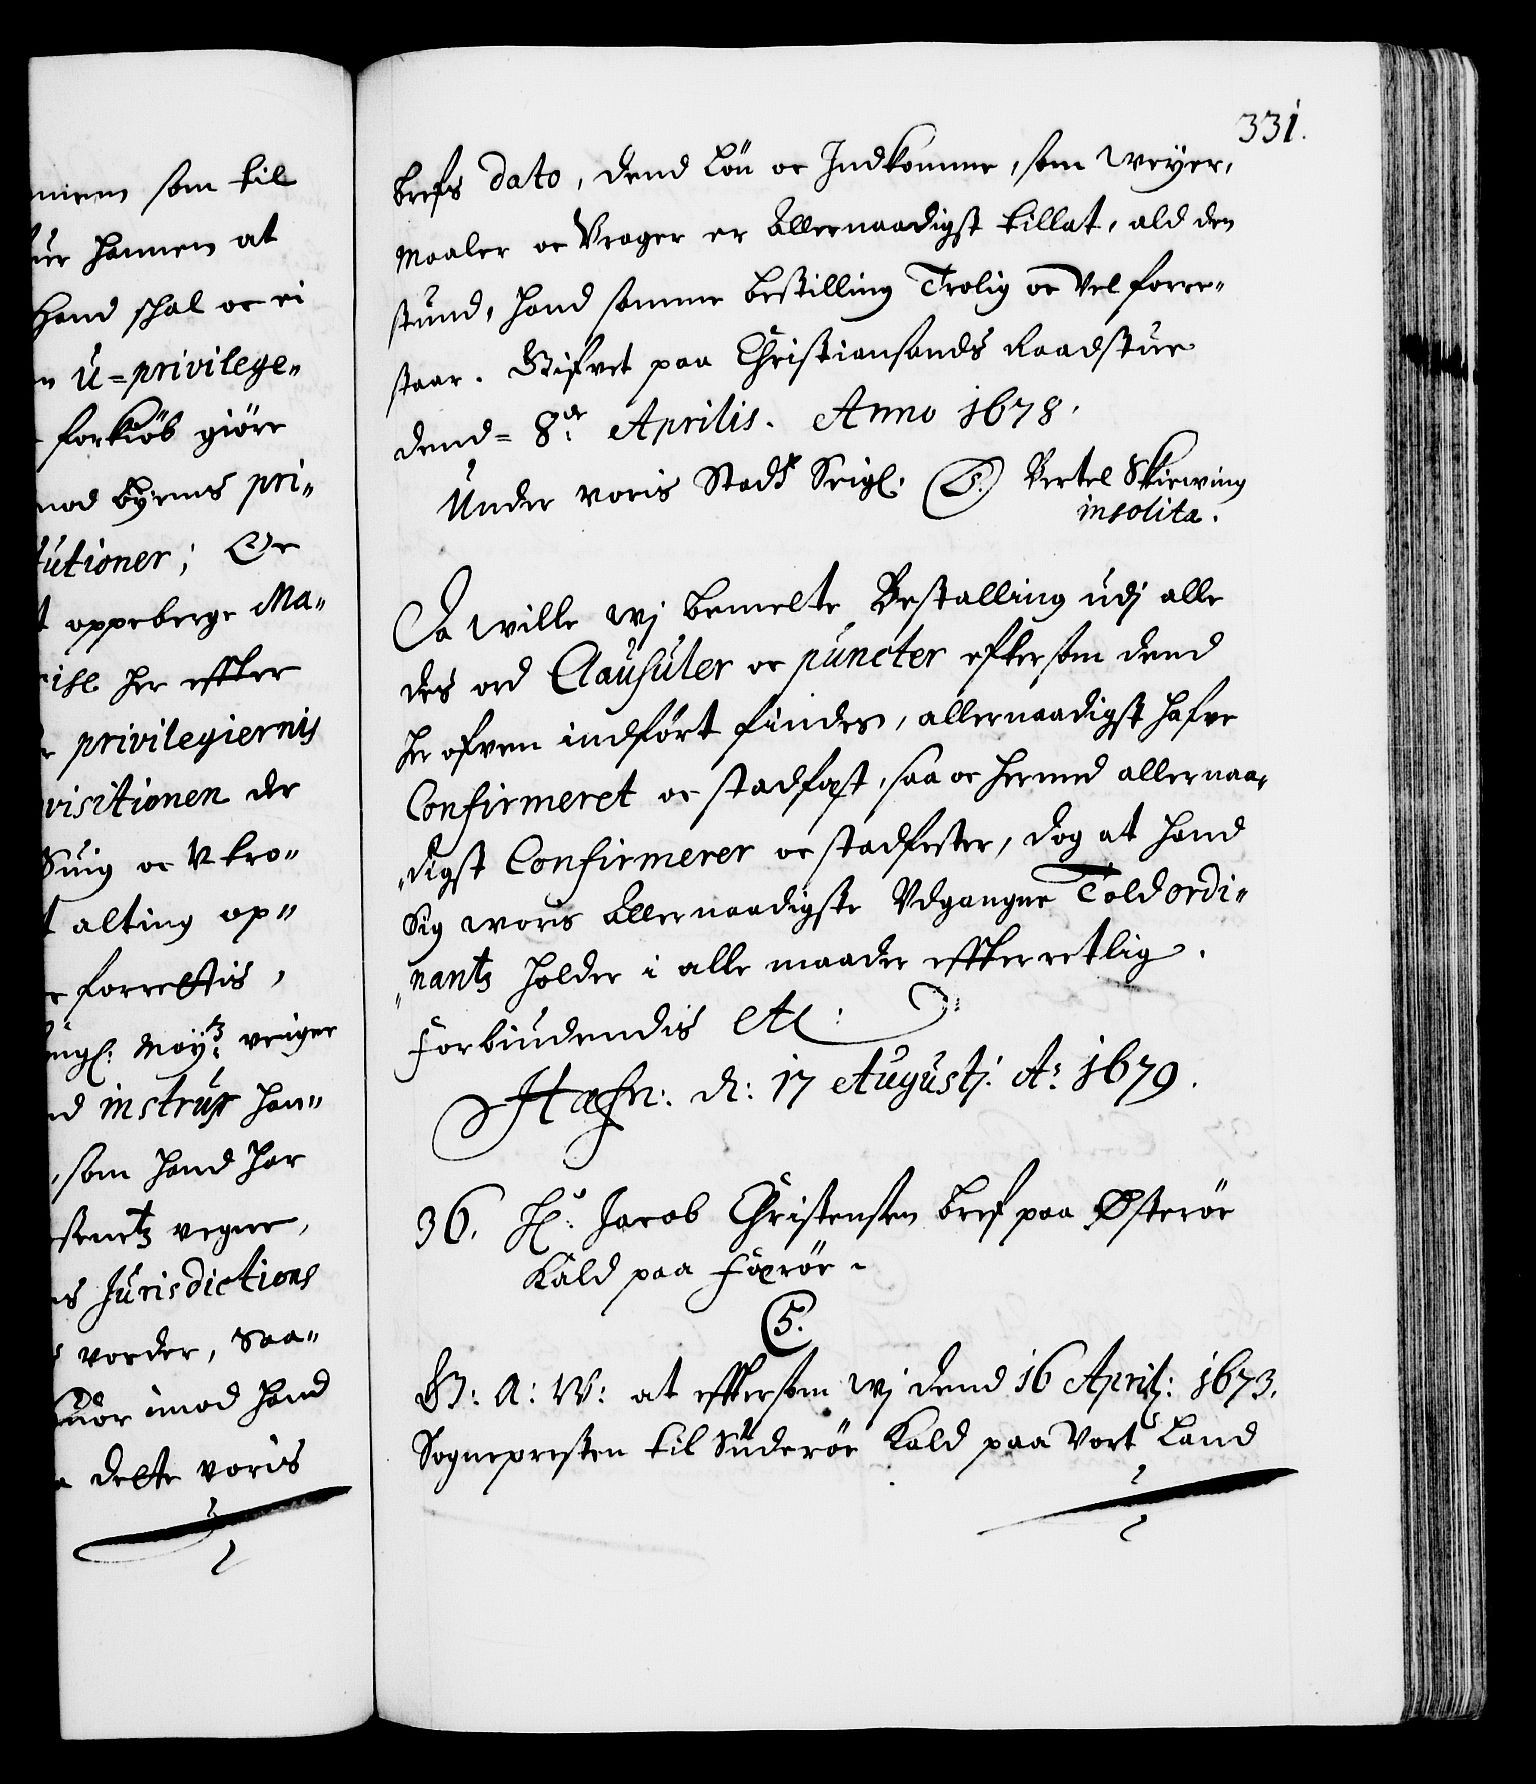 331.
brefs dato, dend Løn oc Indkomme, som weyer,
Maaler oc Vrager er allernaadigst tillat, ald den
stund, hand samme bestilling Trolig oc Vel forre-
staar. Gifvet paa Christiansands Raadstue
dend = 8de Aprilis. Anno 1678.
Under voris Stads Seigl: (L.S.) Bertel Skierving
insolita.
Da wille wj bemelte Bestalling udj alle
des ord Clausuler oc puncter eftersom dend
her ofven indført findes, allernaadigst hafve
Confirmeret oc stadfæst, saa oc hermed allernaa-
digst Confirmerer oc stadfester, dog at hand
Sig woris allernaadigste Udgangne Told ordi-
nantz holder i alle maader effterretlig.
Forbiudendis etc:
Hafn: d: 17 Augustj. Ao: 1679.
36. Hr: Jacob Christensen bref paa Østerøe
Kald paa Færøe.
C5.
G: A: W: at effttersom wj dend 16 Aprilj: 1673.
Sognepresten til Suderøe Kald paa Vort Land
som til
hannem at
Hand skal oc ei
U=privilege-
forkiøb giøre
mod byens pri-
tutioner; Oc
oppeberge Ma-
her effter
privilegiernis
visitionen der
Suig oc Utro-
alting op-
forrettis,
Mayts:
instrux han-
som hand har
vegne,
Jurisdictions
vorder, saa-
imod hand
dette voris